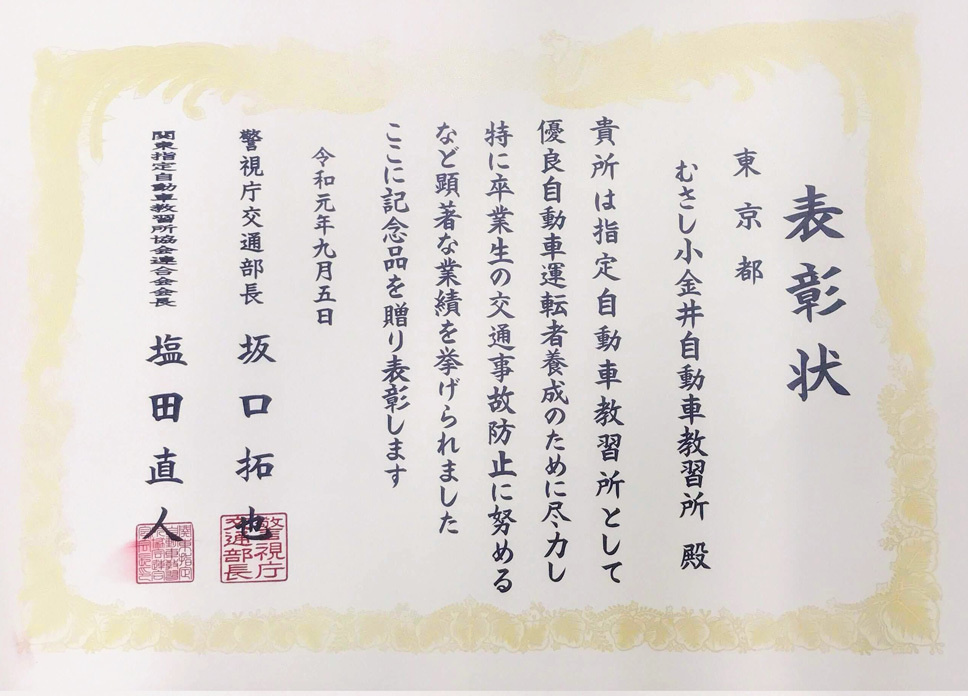 表彰状
東京都
むさし小金井自動車教習所 殿
貴所は指定自動車教習所として
優良自動車運転者養成のために尽力し
特に卒業生の交通事故防止に努める
など顕著な業績を挙げられました
ここに記念品を贈り表彰します
令和元年九月五日
警視庁交通部長 坂口拓也
警視庁
交通部長
関東指定自動車教習所協会連合会会長 塩田直人